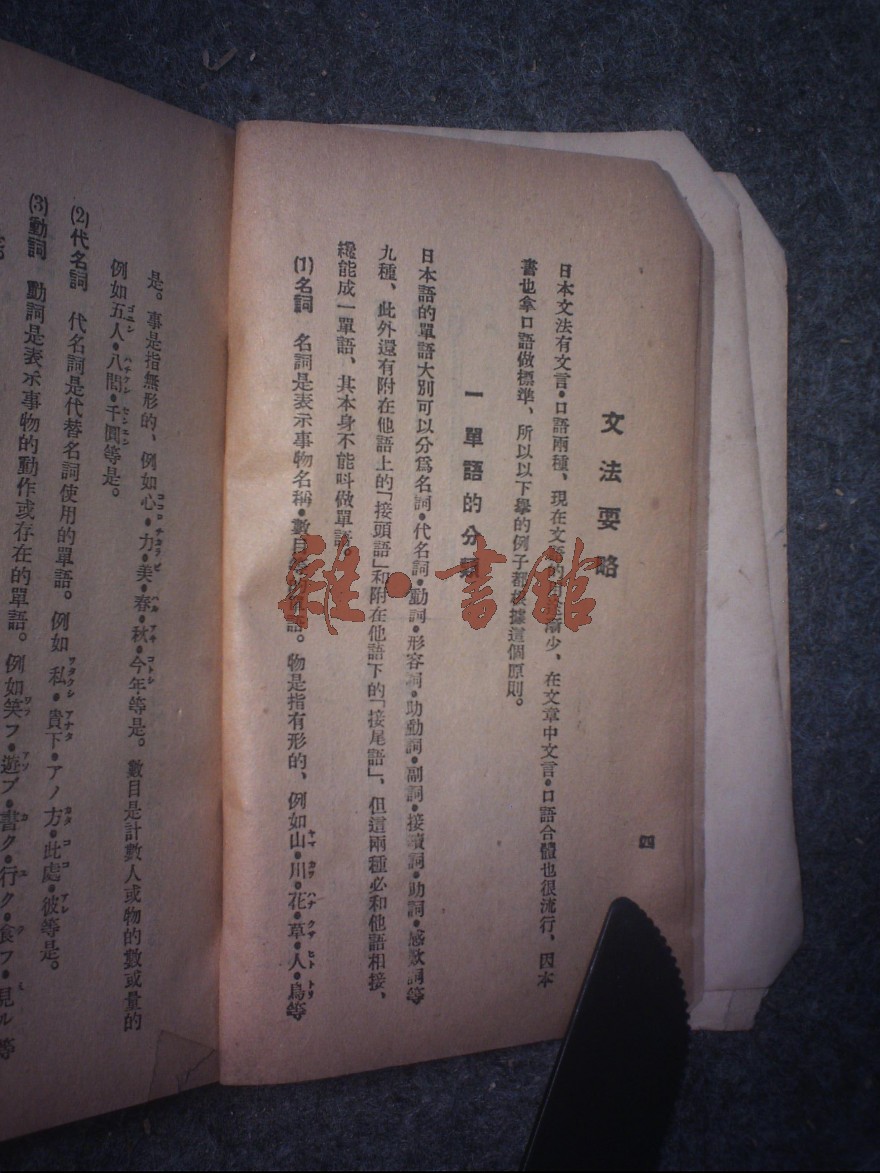 四
文法要略
日本文法有文言•口語兩種、現在文語的漸少、在文章中文言•口語合體也很流行、因本
書也拿口語做標準、所以以下舉的例子都依據這個原則。
一 單語的分類
日本語的單語大別可以分爲名詞•代名詞•動詞•形容詞•助動詞•副詞•接續詞•助詞•感歎詞等
九種、此外還有附在他語上的「接頭語」和附在他語下的「接尾語」、但這兩種必和他語相接、
纔能成一單語、其本身不能叫做單語。
(1)名詞 名詞是表示事物名稱•數目語。物是指有形的、例如山•川•花•草•人•鳥等
ヤマ カワ ハナ クサ ヒト トリ
是。事是指無形的、例如心•力•美•春•秋•今年等是。數目是計數人或物的數或量的
ココロ チカラ ビ ハル アキ コトシ
例如五人•八間•千圓等是。
ゴニン ハチケン センエン
(2)代名詞 代名詞是代替名詞使用的單語。例如私•貴下•アノ方•此處•彼等是。
ワタクシ アナタ カタ ココ アレ
(3)動詞 動詞是表示事物的動作或存在的單語。例如笑フ•遊ブ•書ク•行ク•食フ•見ル等
ワラ アソ カ ユ ク ミ
雜•書館